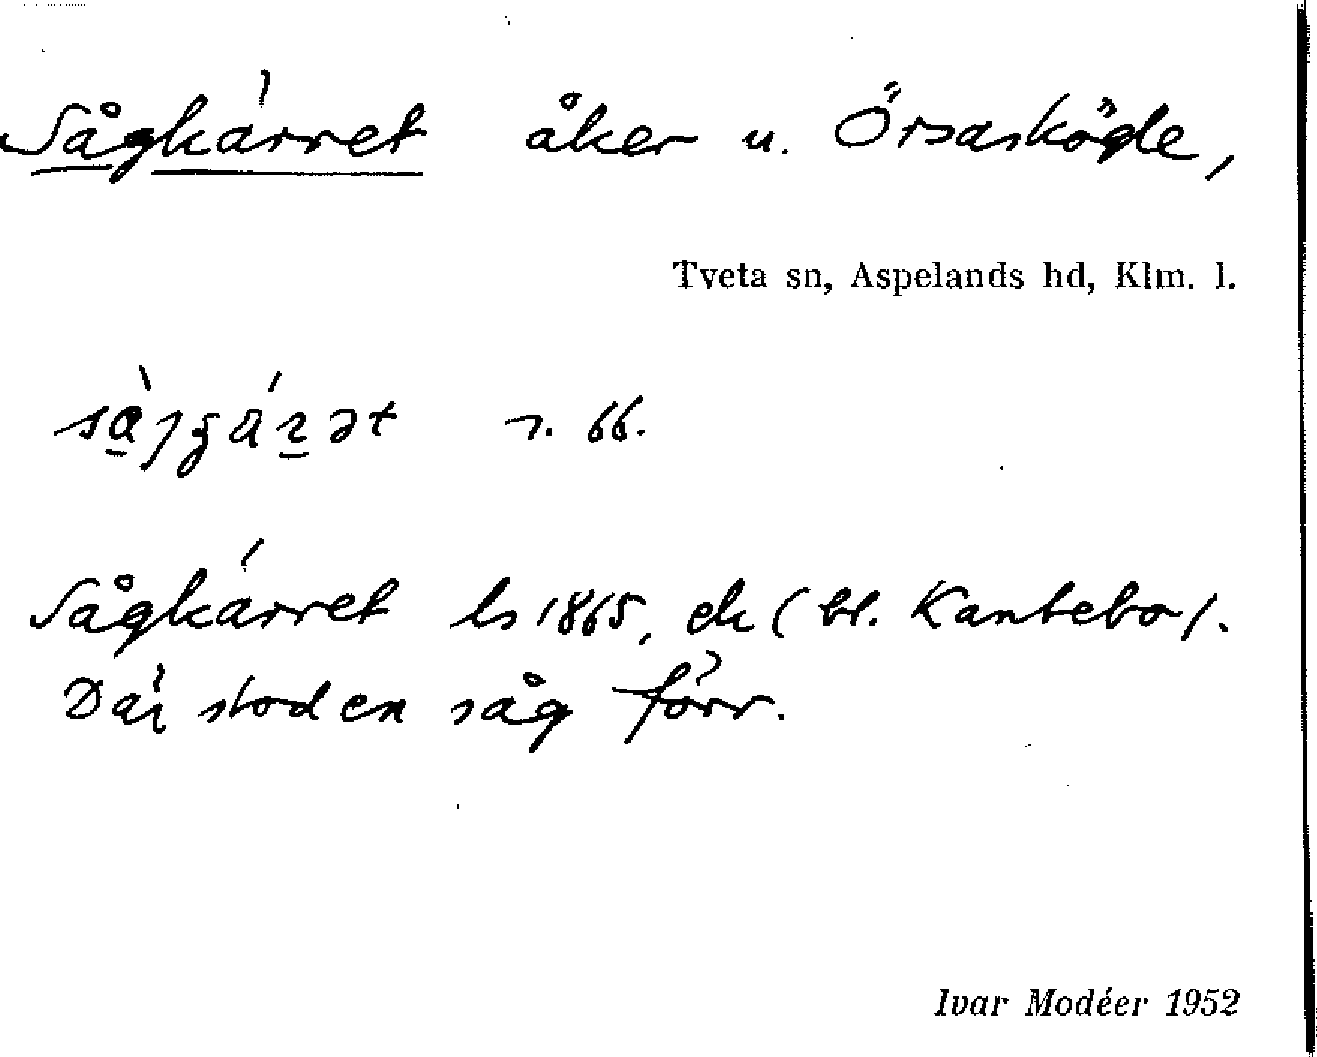 Sågkärret åker u. Örsasköğle,
Tveta sn, Aspelands hd, Klm. l.
r. 66.
Sågkärret ls 1865, ek (bl. Kantebo).
Där stod en såg förr.
Ivar Modéer 1952